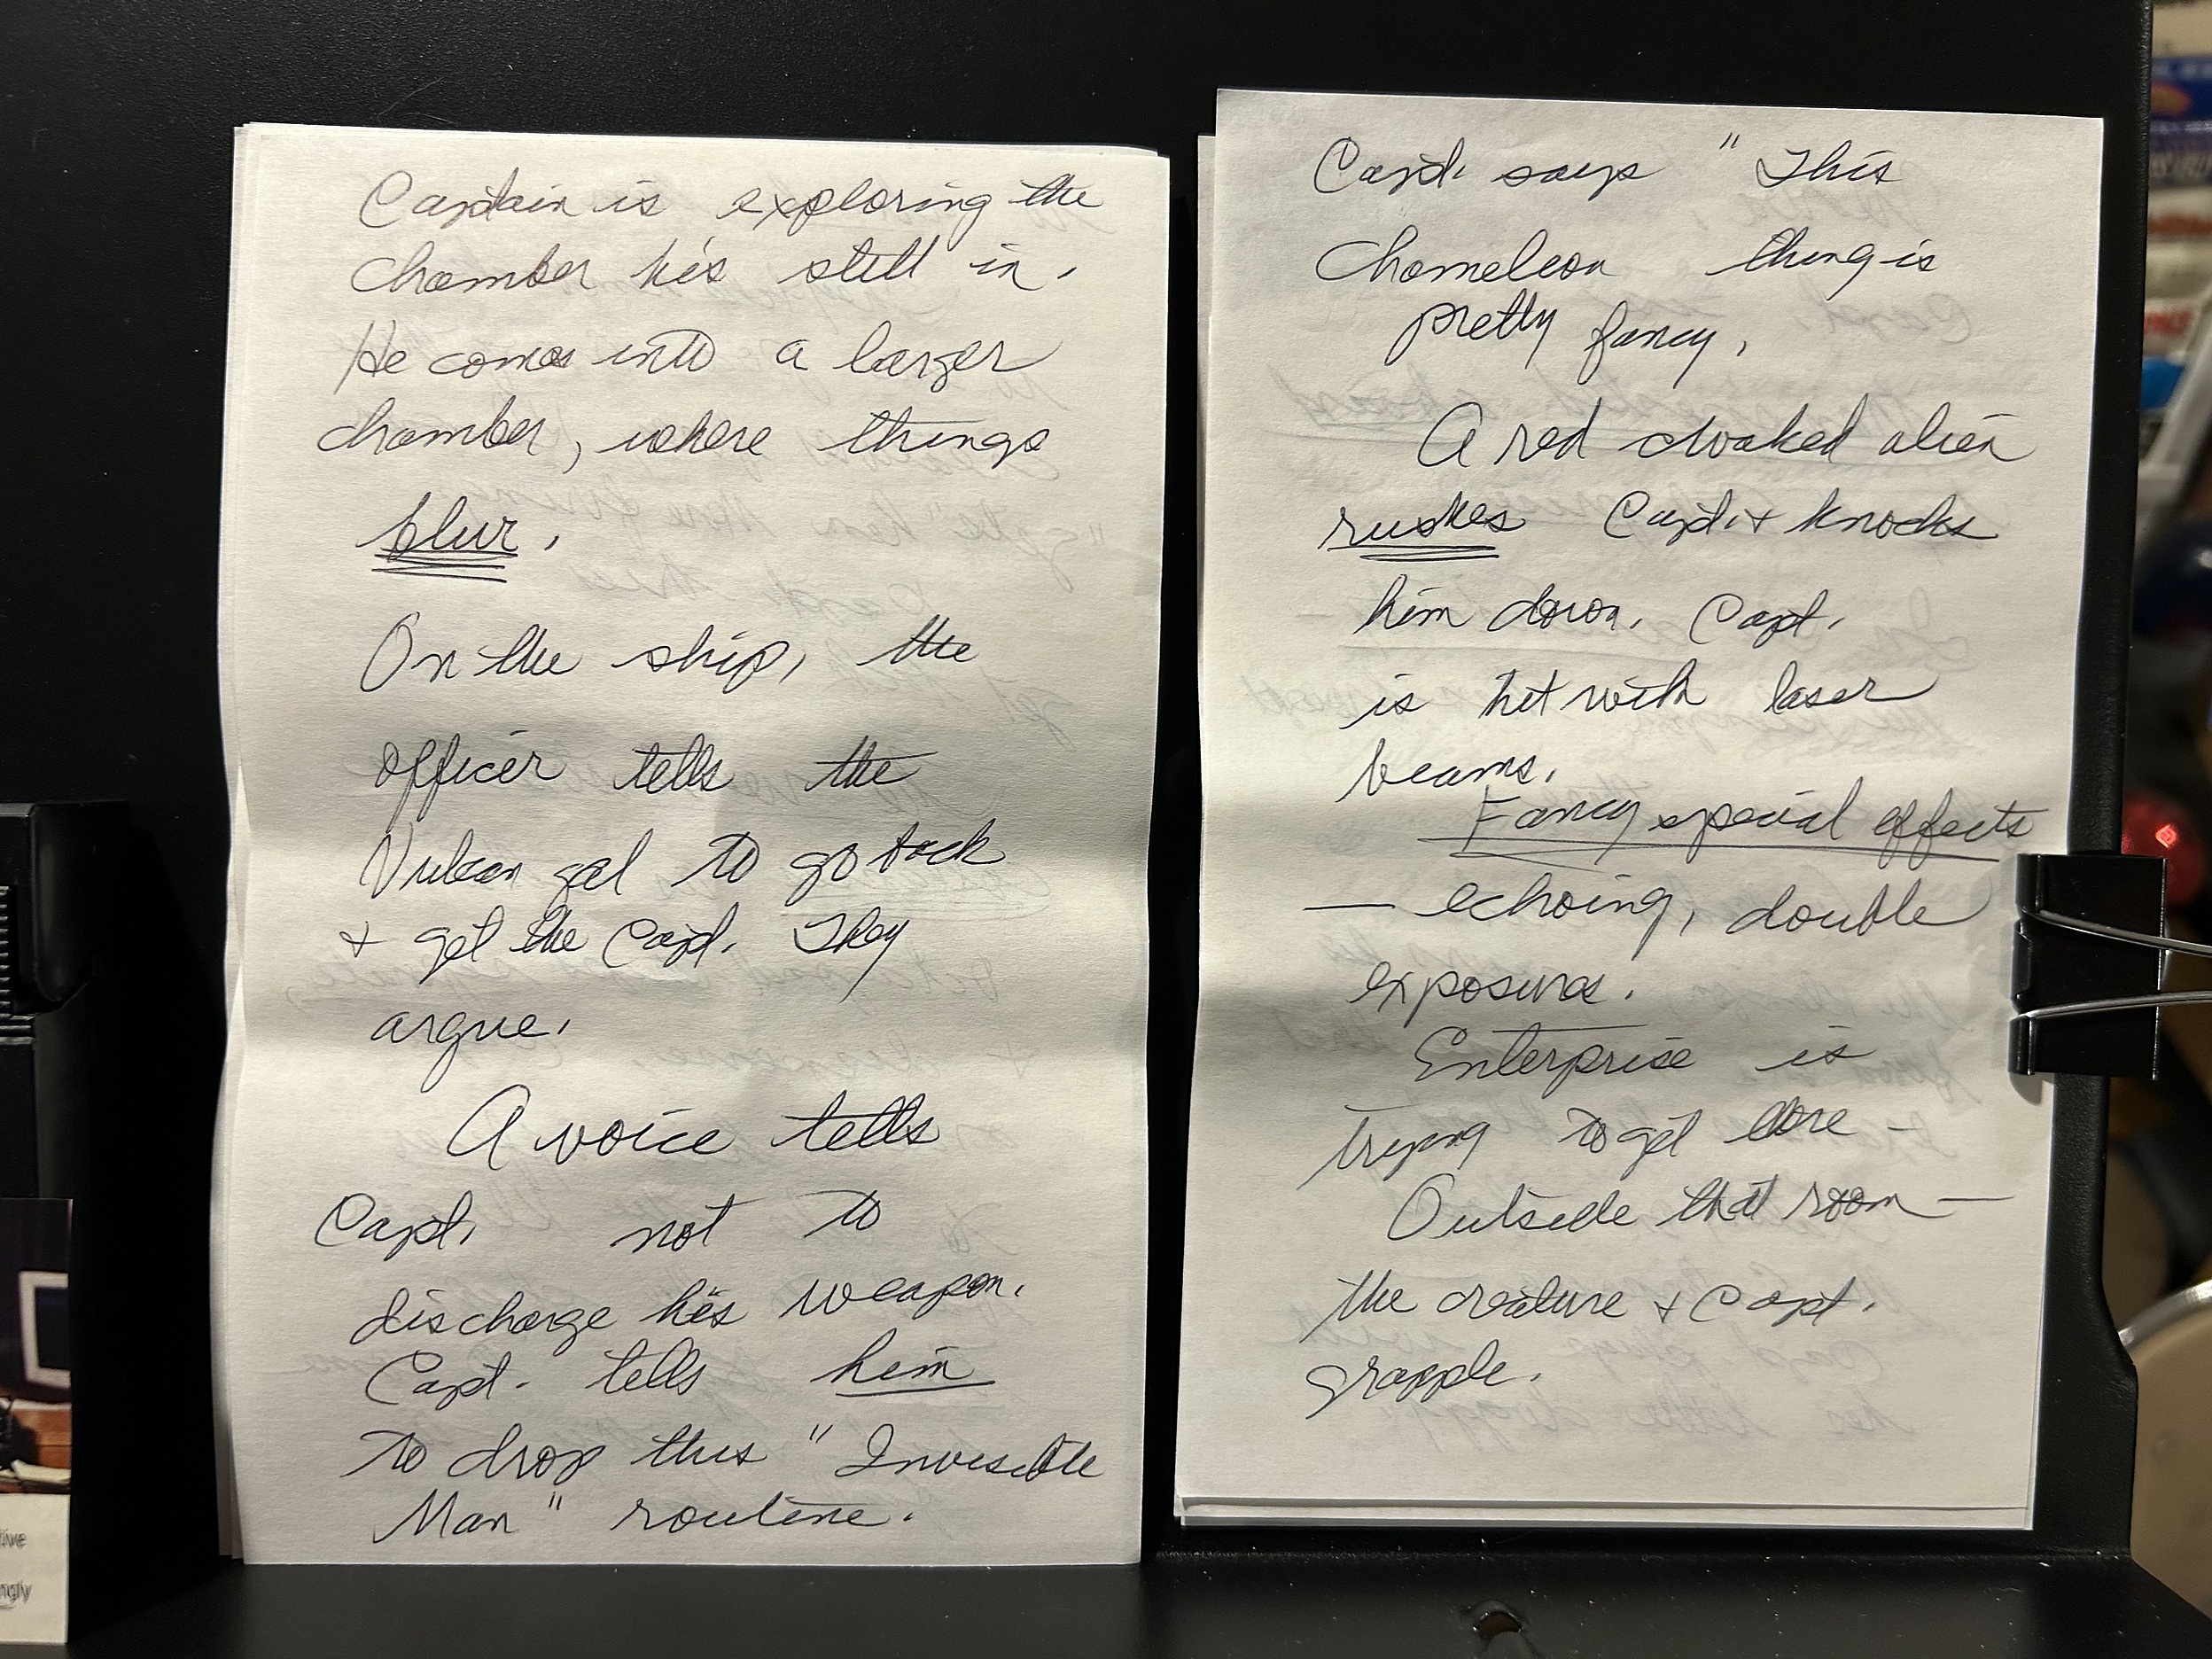 Captain is exploring the
chamber he's still in.
He comes into a larger
chamber, where things
blur.
On the ship, the
officer tells the
Vulcan gal to go back
+ get the Capt. They
argue.
A voice tells
Capt. not to
discharge his weapon.
Capt. tells him
to drop this "Invisible
Man" routine.
Capt. says "This
Chameleon thing is
pretty fancy.
A red cloaked alien
rushes Capt. + knocks
him down. Capt.
is hit with laser
beams.
Fancy special effects
— echoing, double
exposures.
Enterprise is
trying to get close -
Outside that room —
the creature + Capt.
grapple.